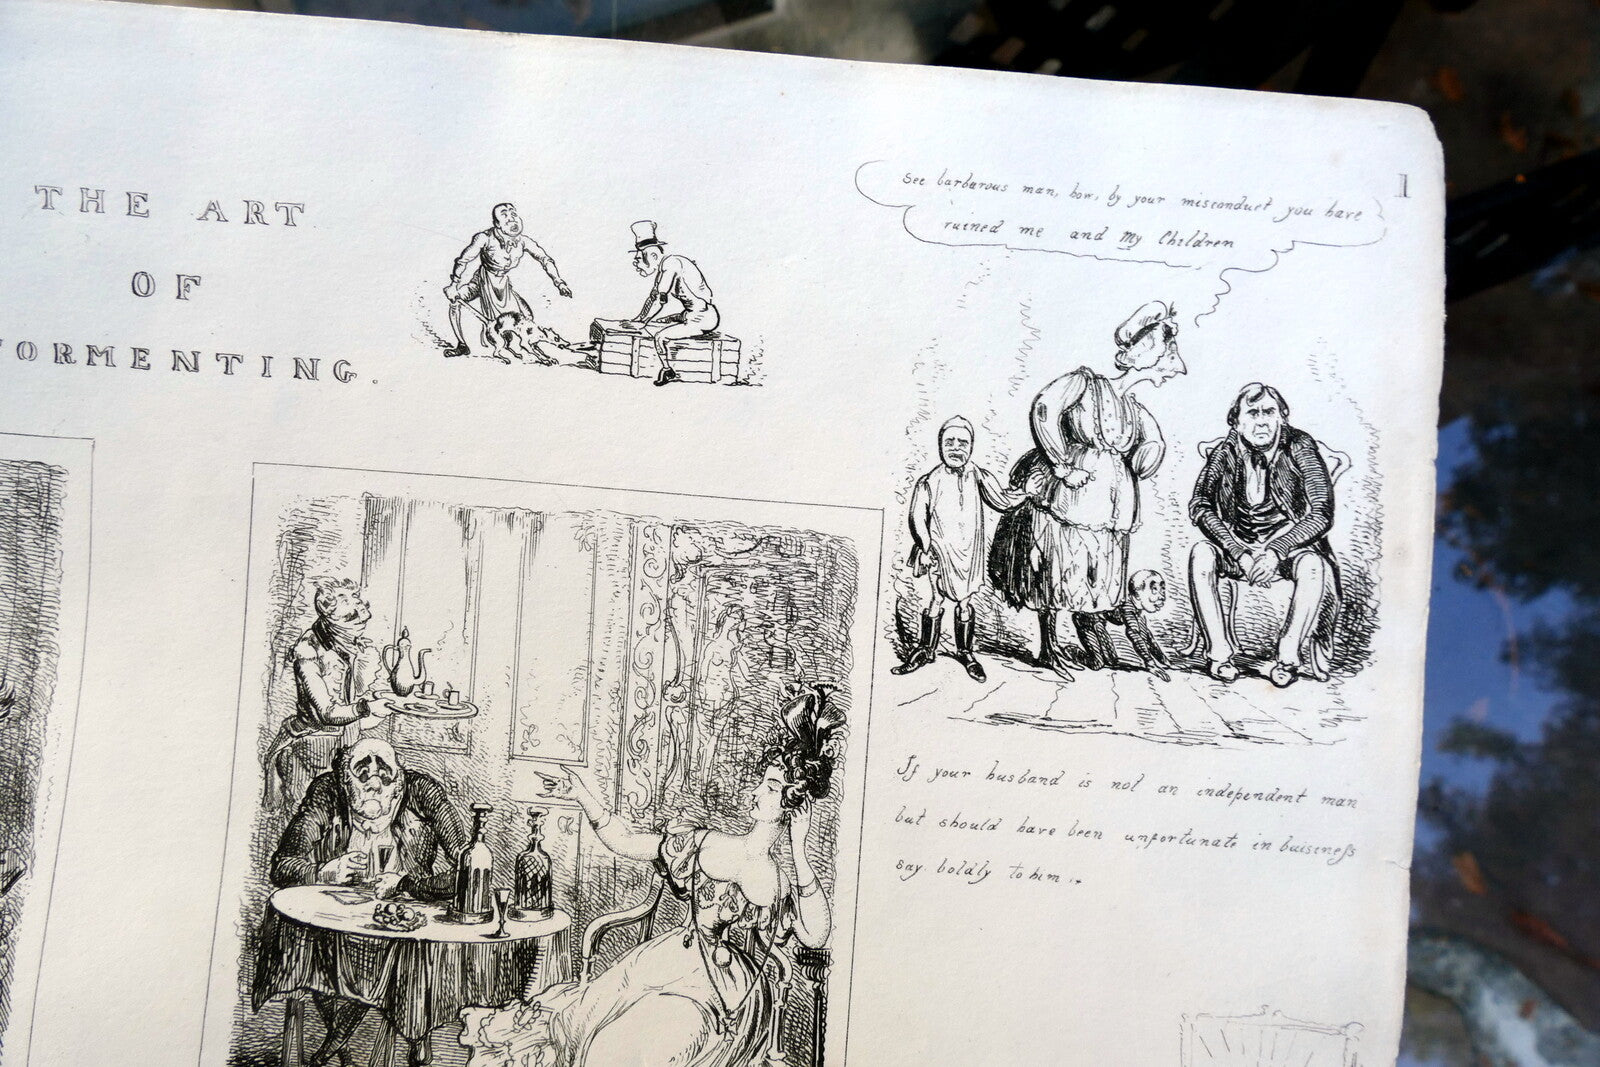 THE ART
OF
TORMENTING.
1
See barbarous man, how, by your misconduct you have
ruined me and My Children
If your husband is not an independent man
but should have been unfortunate in buiseness
say boldly to him